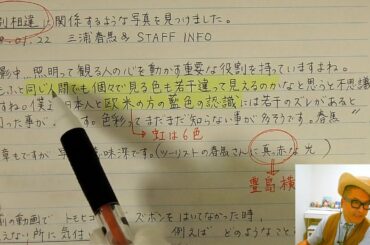 別相違」に関係するような写真を見つけました。
.01.22 三浦春馬 & STAFF INFO
影．．．照明って観る人の心を動かす重要な役割を持っていますよね。
ふと同じ人間でも個々で見る色も若干違って見えるのかなと思うと不思議
すね。僕達日本人と欧米の方の藍色の認識には若干のズレがあると
った事が す。色彩ってまだまだ知らない事が多そうです。春馬
虹は6色
章もですが写 味深です。(ツーリストの春馬さんに真っ赤な光
豊島横
前の動画で トモヒコ ズボンをはいてなかった時、
えない所に気付 例えば どのようなこと